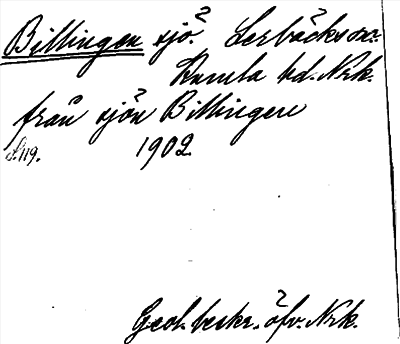 Billingen sjö? Lerbäcks sn.
Kumla hd. Nrk.
från sjön Billingen
S.119. 1902
Geol. beskr. öfv. Nrk.